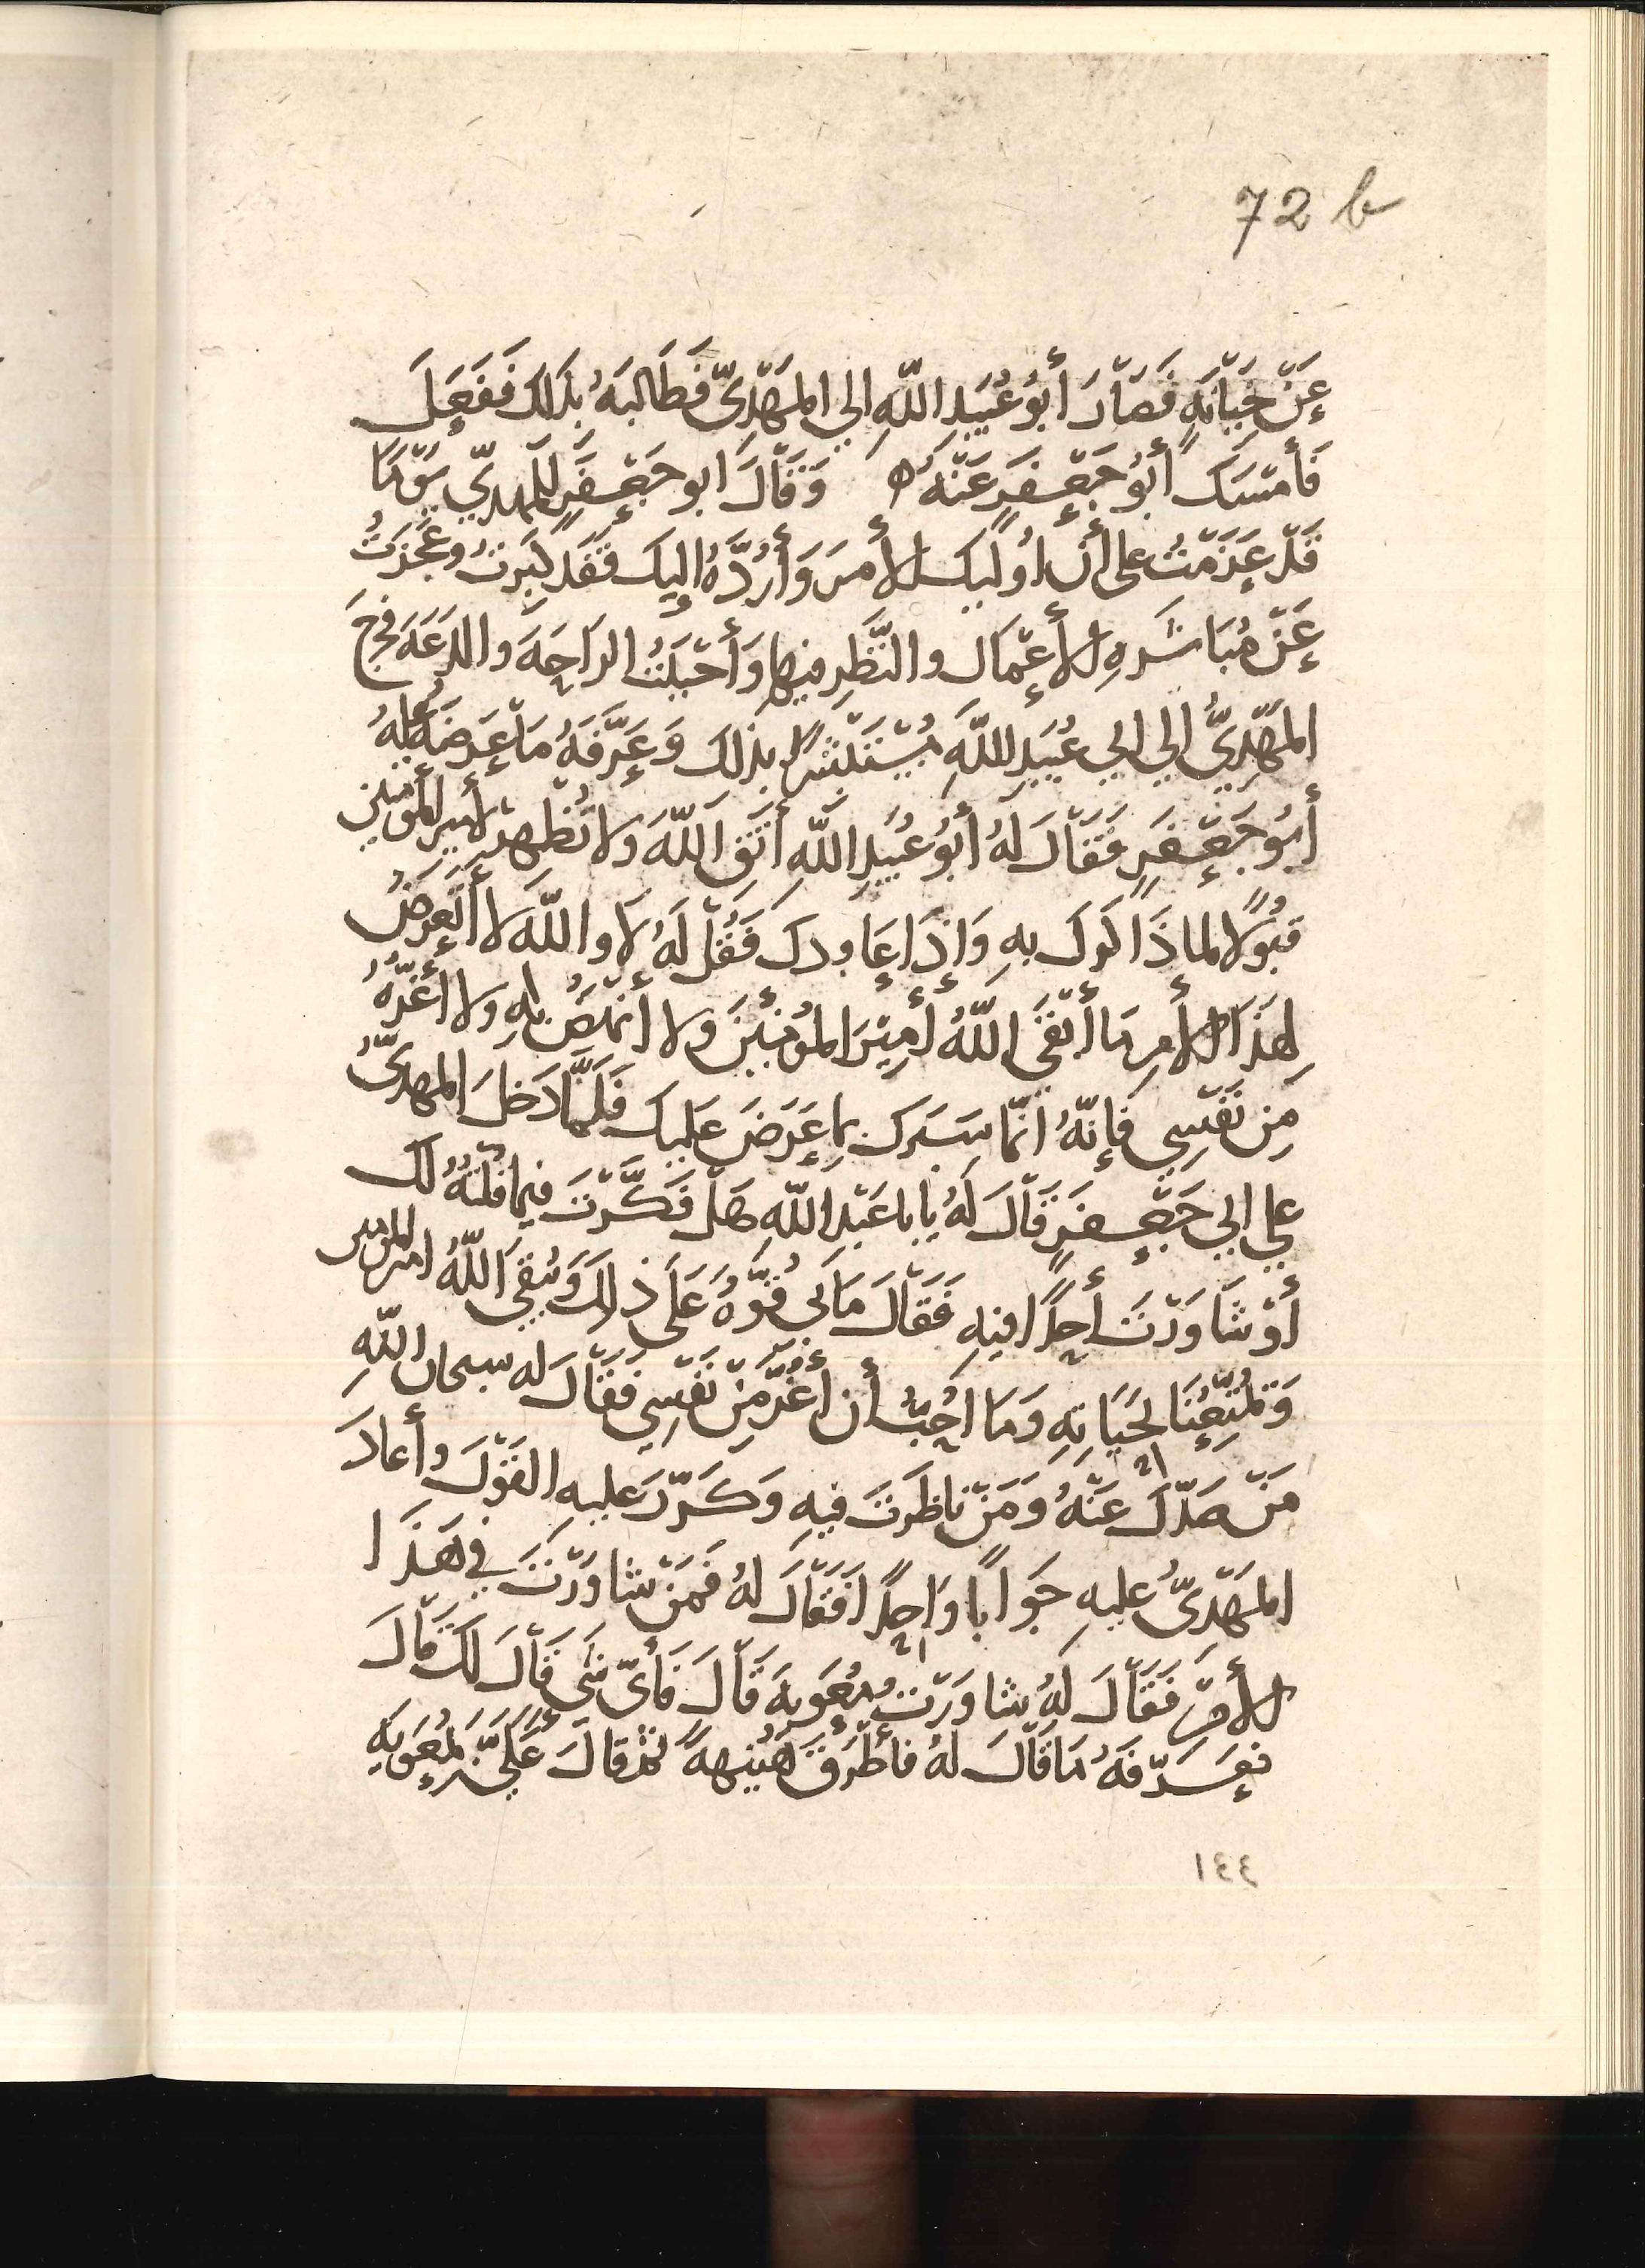 72 b
عَنْ خَيَانَهِ فَصَارَ أبُو عُبَيدِ اللّهِ الي المَهْدِيّ فَطَالبَهُ بذَلكَ فَفَعَلَ
فَأمْسَكَ أبُو جَعْفَرٍ عَنْهُ ه وَقَالَ ابو جَعْفَرٍ للمهديّ يَوْمًا
قَدْ عَزَمْتُ على أن اُوَلّيكَ الأمرَ وَأرُدَّهُ إليكَ فقَد كَبِرتُ وعَجَزتُ
عَنْ مُبَاشَرَهِ الأعْمَال والنَّظَرِ فيها وَأحْبَبْتُ الرَاحَهَ والدَعَهَ فخرجَ
المَهْدِيُّ الي ابي عُبَيدِ اللّهِ مُسْتَبْشِرًا بذلكَ وَعَرَّفَهُ مَا عَرضَهُ عليه
أبُو جَعْفَرٍ فَقَالَ لَهُ أبُو عُبَيدِ اللّهِ أتَّقِ اللّهَ ولا تُظْهِرْ لأمير المؤمنين
قبُولًا لما ذَاكَركَ بهِ وَإذَا عَاودكَ فَقُلْ لَهُ لَا واللّهِ لَا أتَعَرضُ
لِهذَا الأمرِ مَا أبْقَى اللّهُ أمِيْرَ المُؤمنينَ ولا أنهَضُ بهِ ولا أغُرّهُ
مِن نَفْسِي فَإنّهُ انّما سَبَرَكَ بما عَرَضَ عَليكَ فَلَمَّا دَخَلَ المهديُّ
علي ابي جَعْفَرٍ قَالَ لَهُ يابا عَبْدِ اللّهِ هَلْ فَكَّرْتَ فيما قُلتُهُ لكَ
أوْ شَاوَرْتَ أحَدًا فيهِ فَقَالَ مَا بي قُوَّهُ عَلَى ذلكَ وَيُبقي اللّهُ امير المومنين
وَيُمَتِّعُنَا بحَيَاتِهِ وَمَا اُحِبُّ أن أغُرَّ مِنْ نَفْسِي فَقَالَ له سبحان اللّهِ
مَنْ صَدّكَ عَنْهُ وَمَنْ نَاظَرتَ فيهِ وَكَرَّرَ عليهِ القَوْلَ وأعَادَ
المَهْدِيُّ عليهِ جَوَابًا وَاحِدًا فَقَالَ لهُ فَمَنْ شاوَرْتَ في هَذَا
الأمْرِ فَقَالَ لَهُ شاوَرْتُ مُعَويهَ قَالَ فَأيّ شي قَالَ لكَ قَالَ
فعَرّفَهُ مَا قَالَ لهُ فأطْرَقَ هُنَيْهَهً ثم قالَ عَلَيَّ بمُعَويهَ
١٤٤